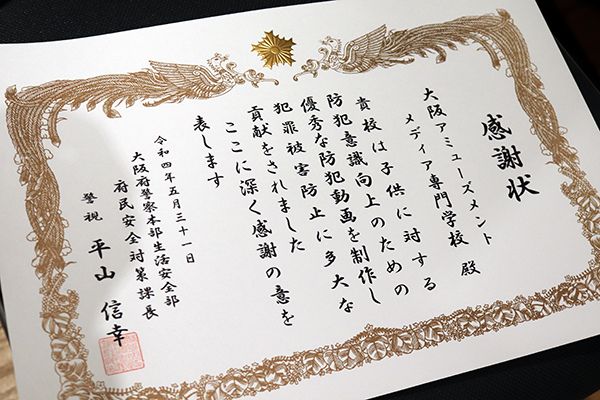 感謝状
大阪アミューズメント
メディア専門学校 殿
貴校は子供に対する
防犯意識向上のための
優秀な防犯動画を制作し
犯罪被害防止に多大な
貢献をされました
ここに深く感謝の意を
表します
令和四年五月三十一日
大阪府警察本部生活安全部
府民安全対策課長
警視 平山信幸